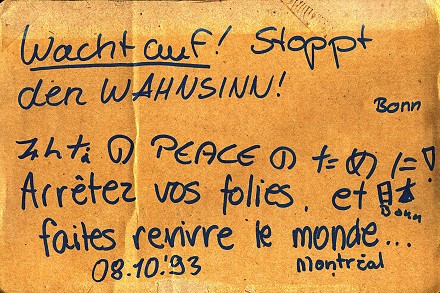 Wacht auf! Stoppt
den WAHNSINN!
Bonn
PEACE
Arrêtez vos folies. et
Bonn
faites revivre le monde...
08.10.'93 Montréal